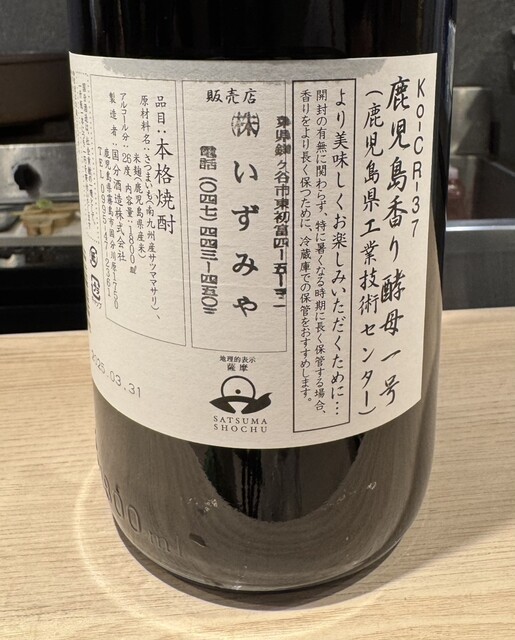 Ko-CR-37
鹿児島香り酵母一号
(鹿児島県工業技術センター)
より美味しくお楽しみいただくために…
開封の有無に関わらず、特に暑くなる時期に長く保管する場合、
香りをより長く保つために、冷蔵庫での保管をおすすめします。
販売店
ヶ谷市東初富四-五-四二
㈱いずみや
電話(〇四七)四四三-一四五〇
地理的表示
薩摩
SATSUMA
SHOCHU
品目:本格焼酎
原材料名:さつまいも(南九州産サツママサリ)、
米麹(鹿児島県産米)
アルコール分:26度、内容量:1800ml
製造者:国分酒造株式会社
鹿児島県霧島市国分川原1750
TEL 0995-47-2361
2025.03.31
000ml